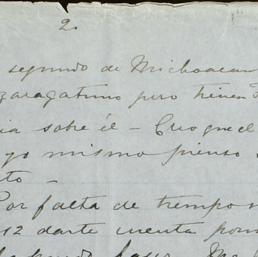 2.
segundo de Michoacan
zaragatismo pero tienen
ia sobre él - Creo que el
yo mismo pienso
to -
Por falta de tiempo n
12 darte cuenta porm